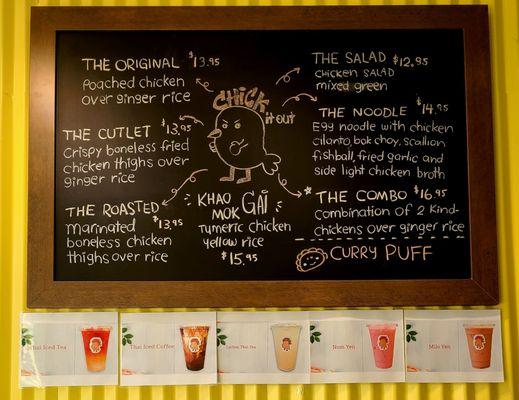 THE ORIGINAL $13.95
Poached chicken
over ginger rice
THE CUTLET $13.95
Crispy boneless fried
chicken thighs over
ginger rice
THE ROASTED $13.95
marinated
boneless chicken
thighs over rice
CHICK
it out
KHAO
MOK GAI
tumeric chicken
yellow rice
$15.95
THE SALAD $12.95
CHICKEN SALAD
mixed green
THE NOODLE $14.95
Egg noodle with chicken
cilanto, bok choy, scallion
fishball, fried garlic and
side light chicken broth
THE COMBO $16.95
combination of 2 kind-
chickens over ginger rice
CURRY PUFF
Thai Iced Tea
Thai Iced Coffee
Thai Tea
Nom Yen
Milo Yen